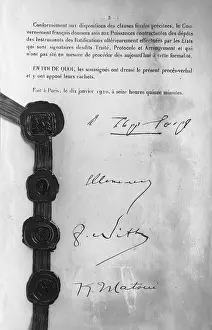 - 3 -
Conformément aux dispositions des clauses finales précitées, le Gou-
vernement français donnera avis aux Puissances contractantes des dépôts
des instruments des Ratifications ultérieurement effectuées par les États
qui sont signataires desdits Traité, Protocole et Arrangement et qui
n'ont pas été en mesure de procéder dès aujourd'hui à cette formalité.
EN FOI DE QUOI, les soussignés ont dressé le présent procès-verbal
et y ont apposé leurs cachets.
Fait à Paris, le dix janvier 1920, à seize heures quinze minutes.
K Matsui